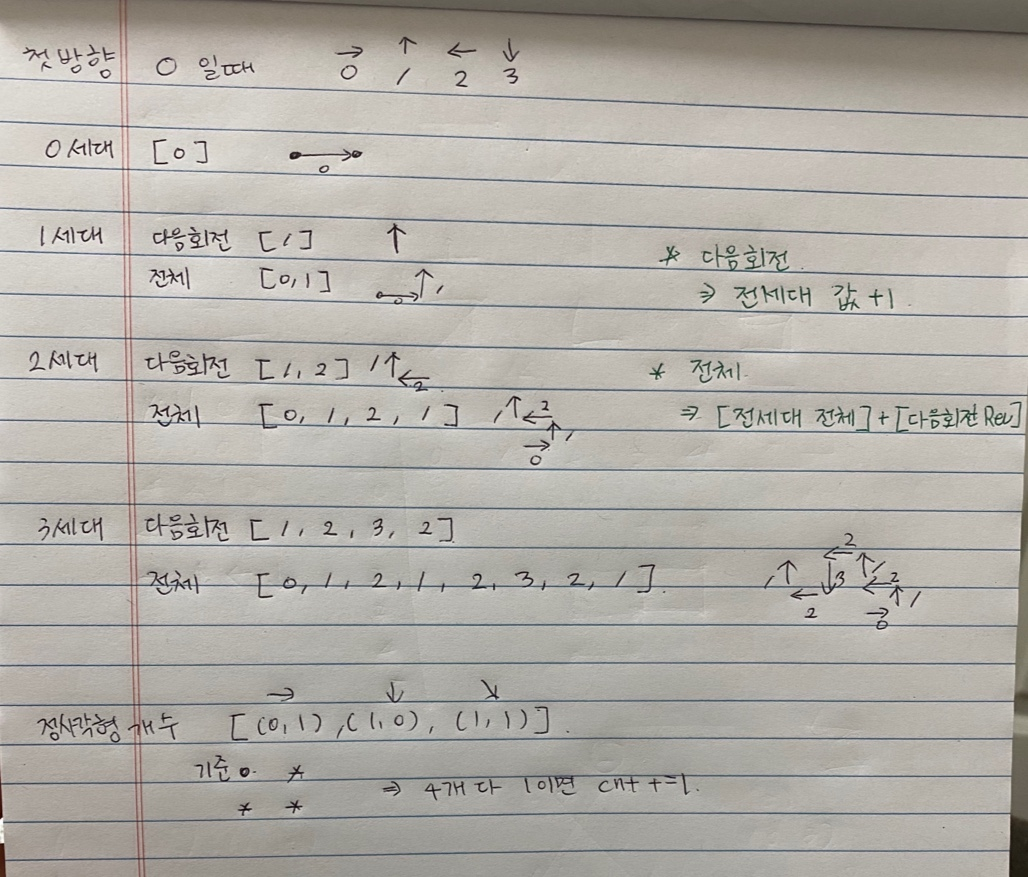 첫방향 0 일때 → ↑ ← ↓
0 1 2 3
0세대 [0] 0
1세대 다음회전 [1] ↑
전체 [0,1] 0 ↑ 1
* 다음회전.
⇒ 전세대 값 +1.
2세대 다음회전 [1, 2] 1↑ ←2
전체 [0, 1, 2, 1] 1↑ ←2 ↑1 →0
* 전체.
⇒ [전세대 전체] + [다음회전 Rev]
3세대 다음회전 [1, 2, 3, 2]
전체 [0, 1, 2, 1, 2, 3, 2, 1]. 1↑ ←2 ↓3 ←2 ↑1 ←2 ↑1 →0
→ ↓ ↘
정사각형 개수 [(0,1), (1,0), (1,1)].
기준 o. *
* * ⇒ 4개 다 1이면 cnt +=1.